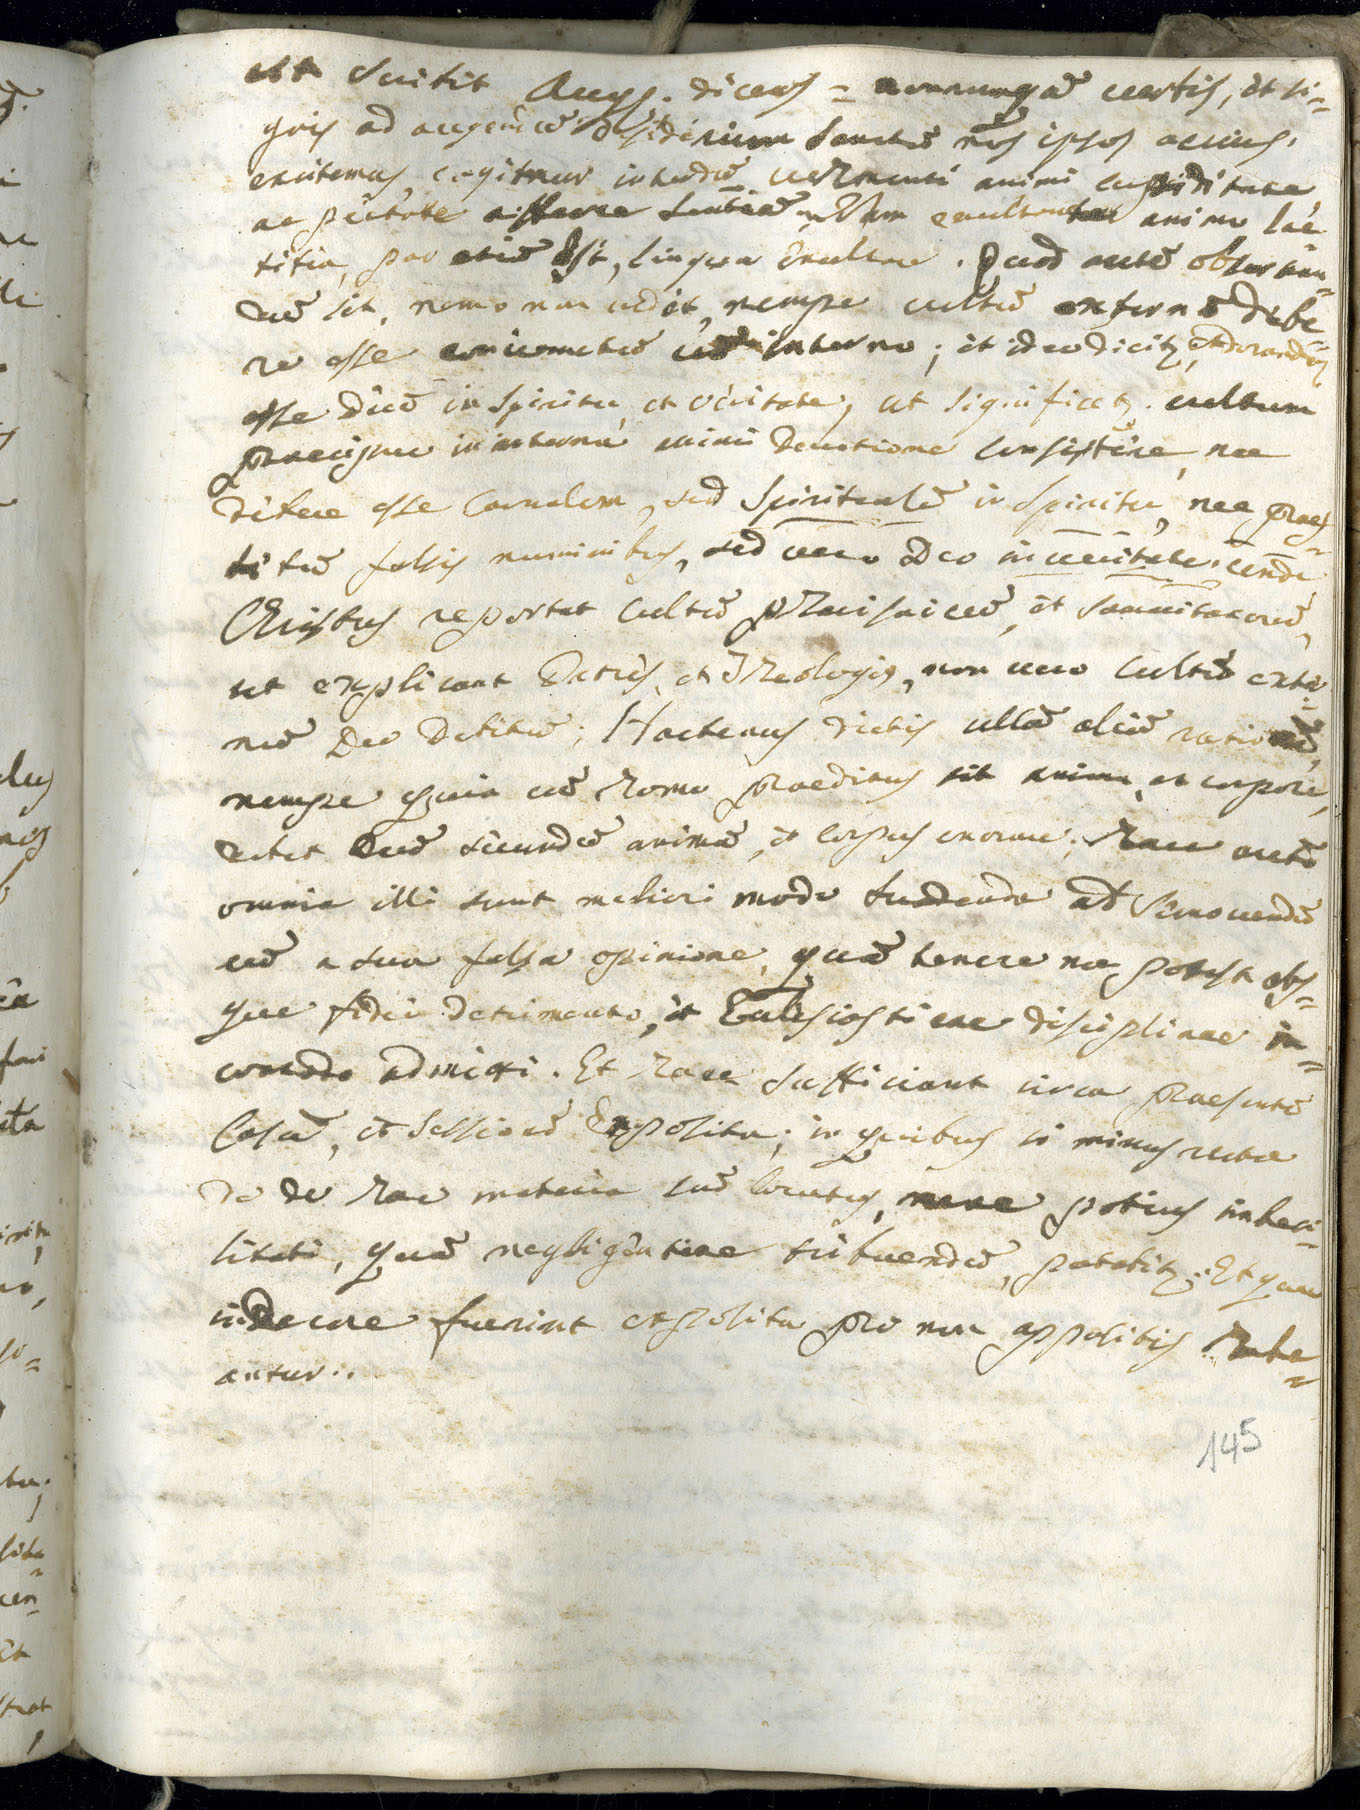 Aug. dicens = nonnunquā verbis, et si=
gnis ad augendū desiderium sanctū nos ipsos acrius
excitemus, cogitur interdū vehementi animi cupiditate
ac pietate efferre Nam exultante animo lae=
titia, par etiā est, lingua exultare. Quod autē observan=
dū sit, nemo non videt, nempe cultū externū debe=
re esse coniunctū cū interno; et ideo dicitur, adorandū
esse Deū in Spiritu, et veritate, ut significetur cultum
praecipue in interna animi devotione consistere, nec
debere esse carnalem, sed Spiritualē in Spiritu, nec praes=
titū falsis numinibus, sed vero Deo in veritate; unde
Christus cultū et Samaritanorū,
ut explicant Patres, et Theologi, non vero cultū exter=
nū Deo debitū; Hactenus dictis
nempe quia cū homo praeditus sit anima, et corpore,
debet Deū secundū animā, et corpus; haec autē
omnia illi sunt meliori modo suadenda ad removendū
eū a sua falsa opinione, quā tenere non potest abs=
que fidei detrimento, et Ecclesiasticae disciplinae in=
commodo admitti. Et haec sufficiant circa praesentē
Casū, et Sessionē Exposita; in quibus si minus recte
de hac materia sum locutus, meae potius imbeci=
litati, quā negligentiae tribuendū, putabitur. Et quae
fuerint exposita pro non appositis habe=
antur..
145